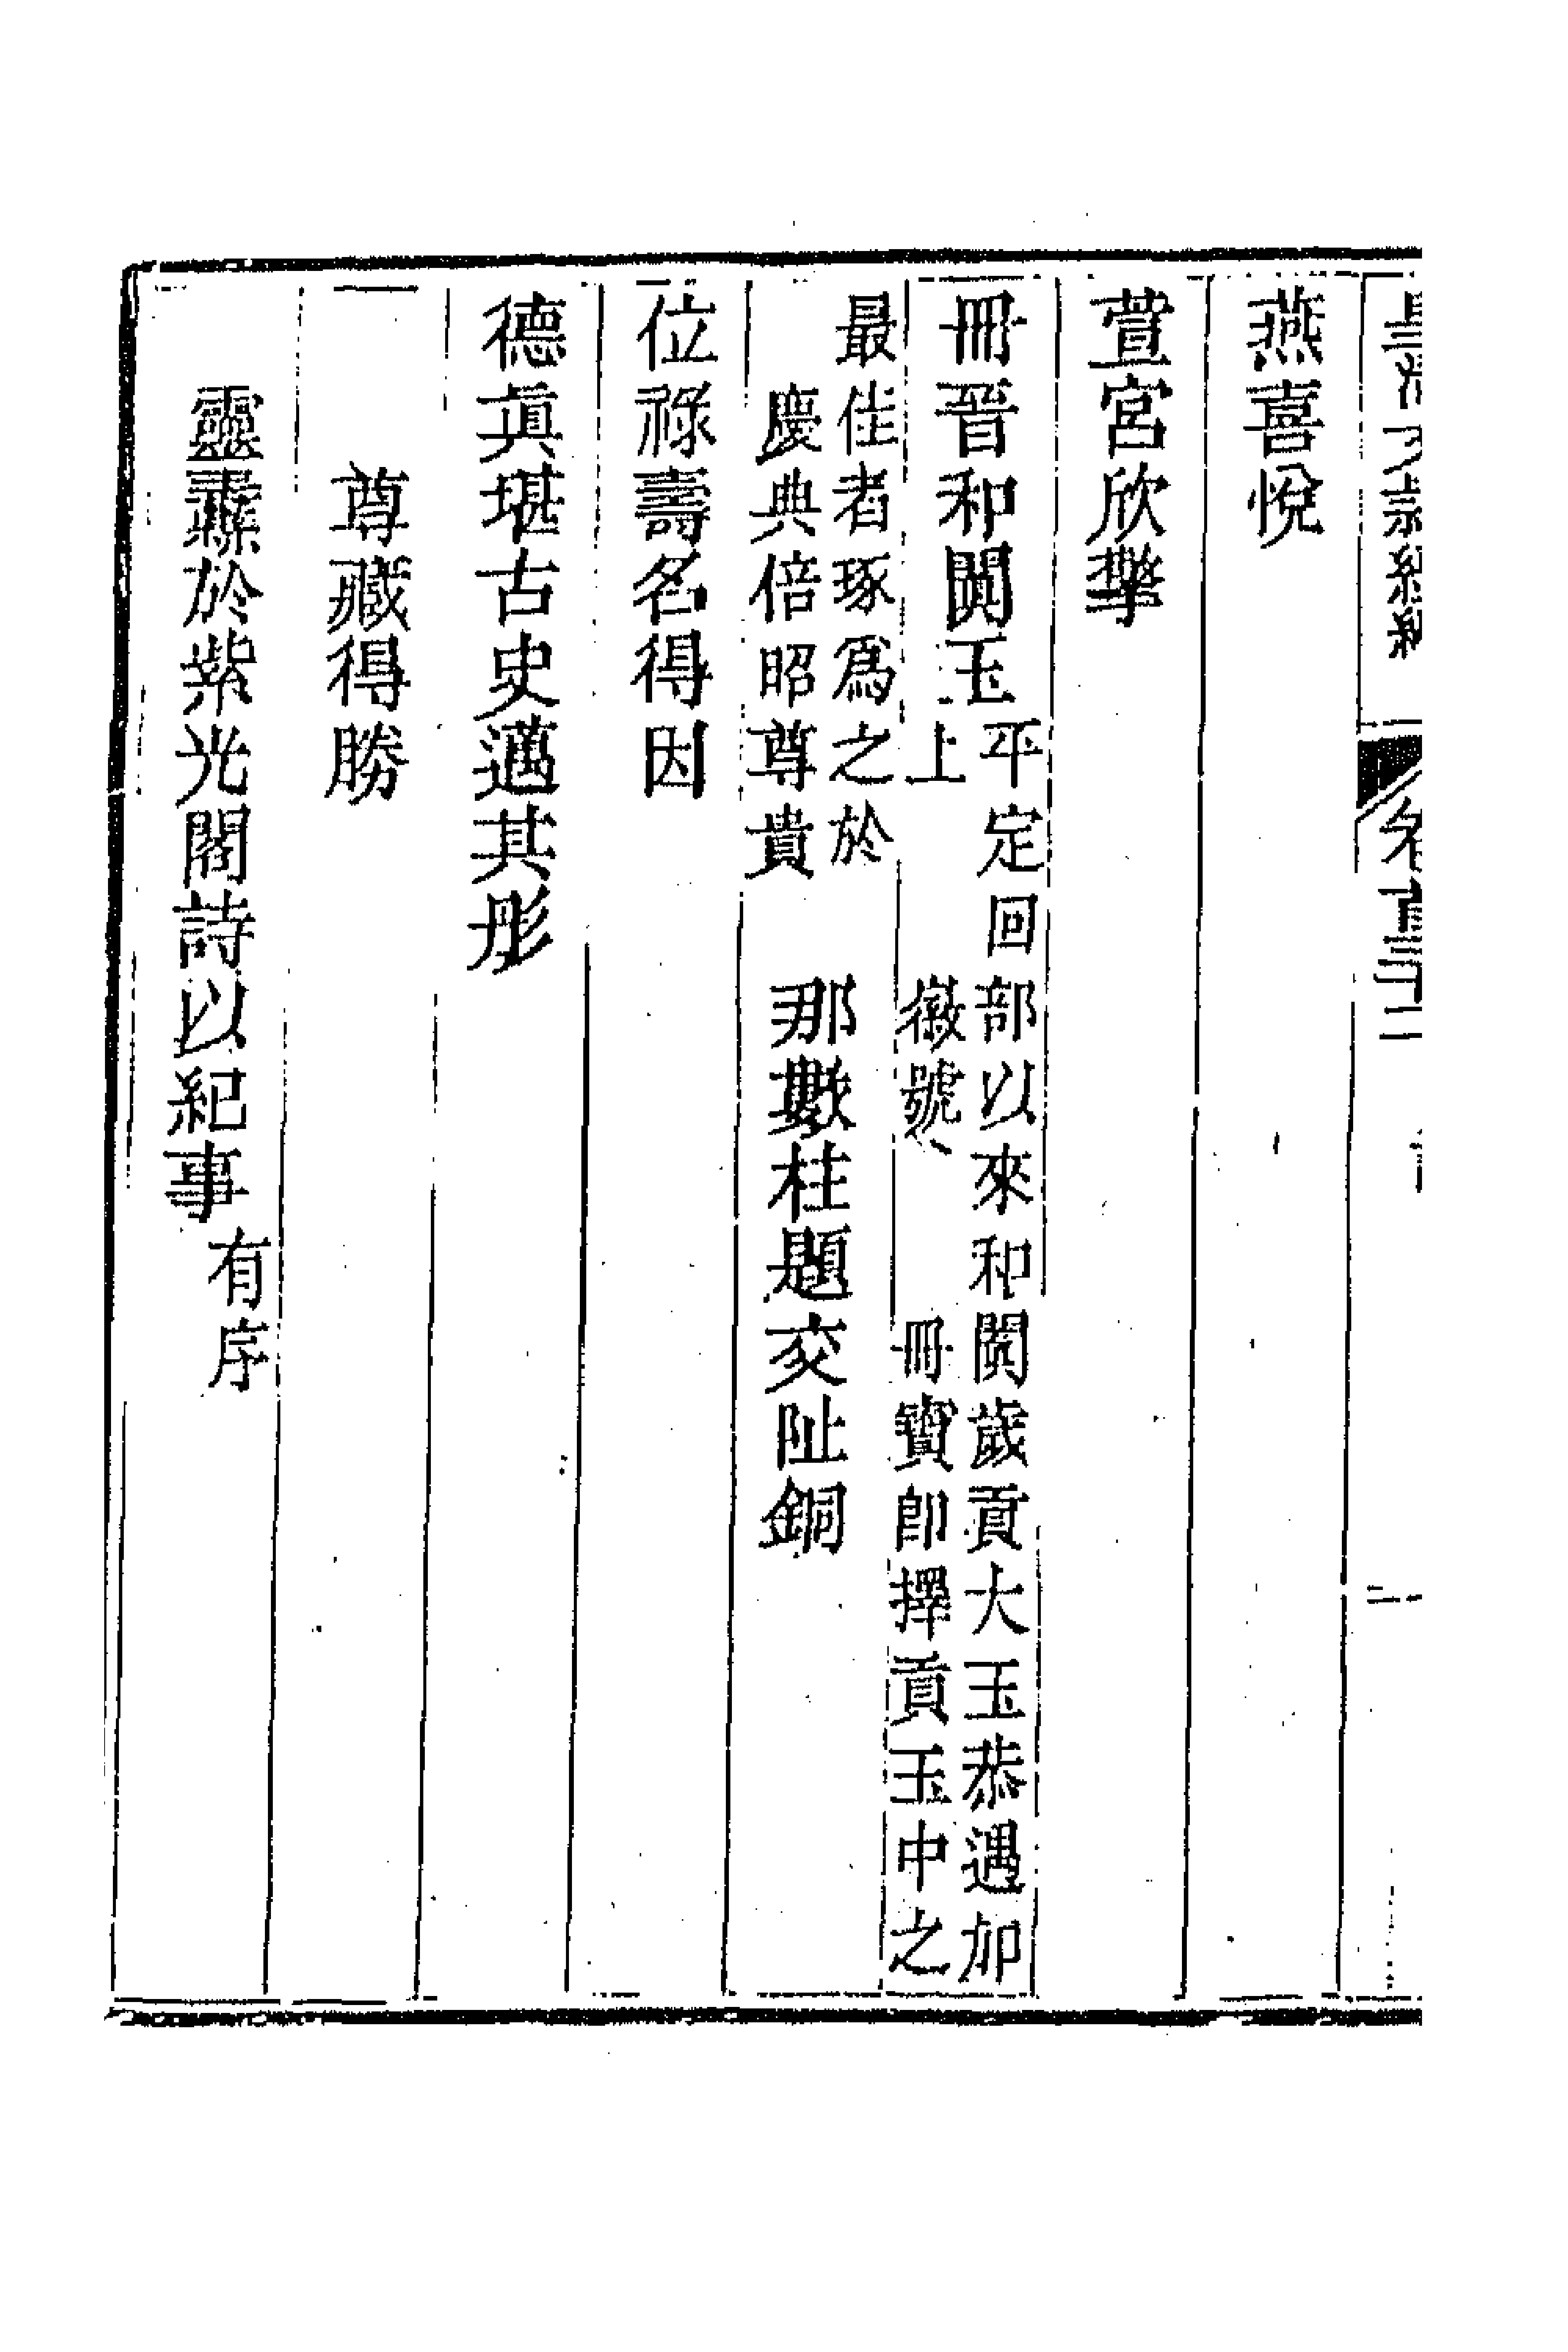 燕喜悅
萱宮欣擎
冊晉和闐玉平定回部以來和闐歲貢大玉恭遇加
上徽號冊寶卽擇貢玉中之
最佳者琢爲之於
慶典倍昭尊貴
那數柱題交阯銅
位祿壽名得因
德眞堪古史邁其彤
尊藏得勝
靈纛於紫光閣詩以紀事有序